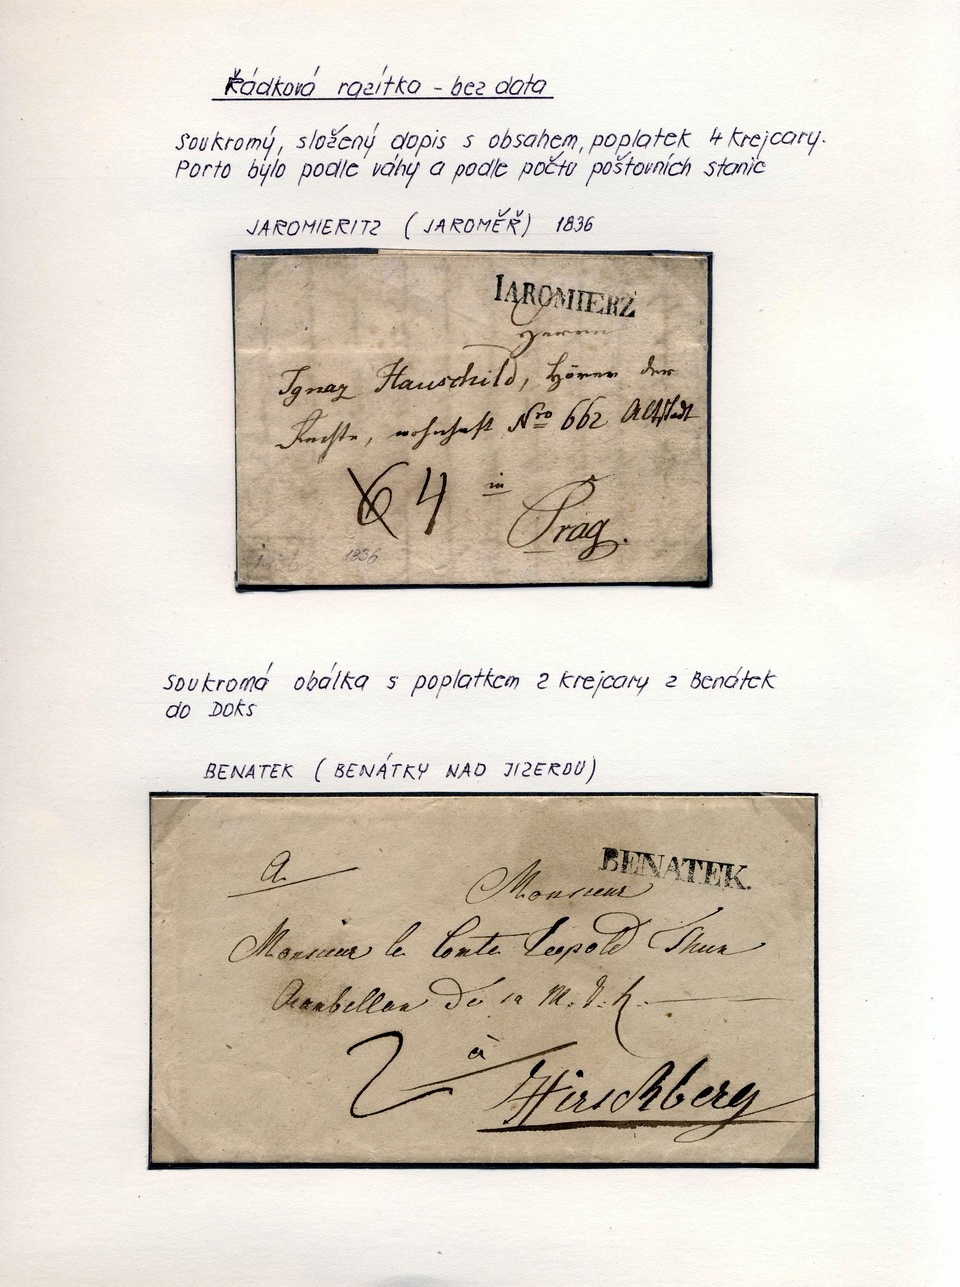 Řádková razítka - bez data
Soukromý, složený dopis s obsahem, poplatek 4 krejcary.
Porto bylo podle váhy a podle počtu poštovních stanic
JAROMIERITZ (JAROMĚŘ) 1836
IAROMIERZ
Herrn
Ignaz Hauschild, Hörer der
Rechte, wohnhaft Nro 662 Altstadt
6 4 in
Prag.
1836
Soukromá obálka s poplatkem 2 krejcary z Benátek
do Doks
BENATEK (BENÁTKY NAD JIZEROU)
BENATEK.
A
Monsieur
Monsieur le Comte Leopold Thun
de
2 à
Hirschberg